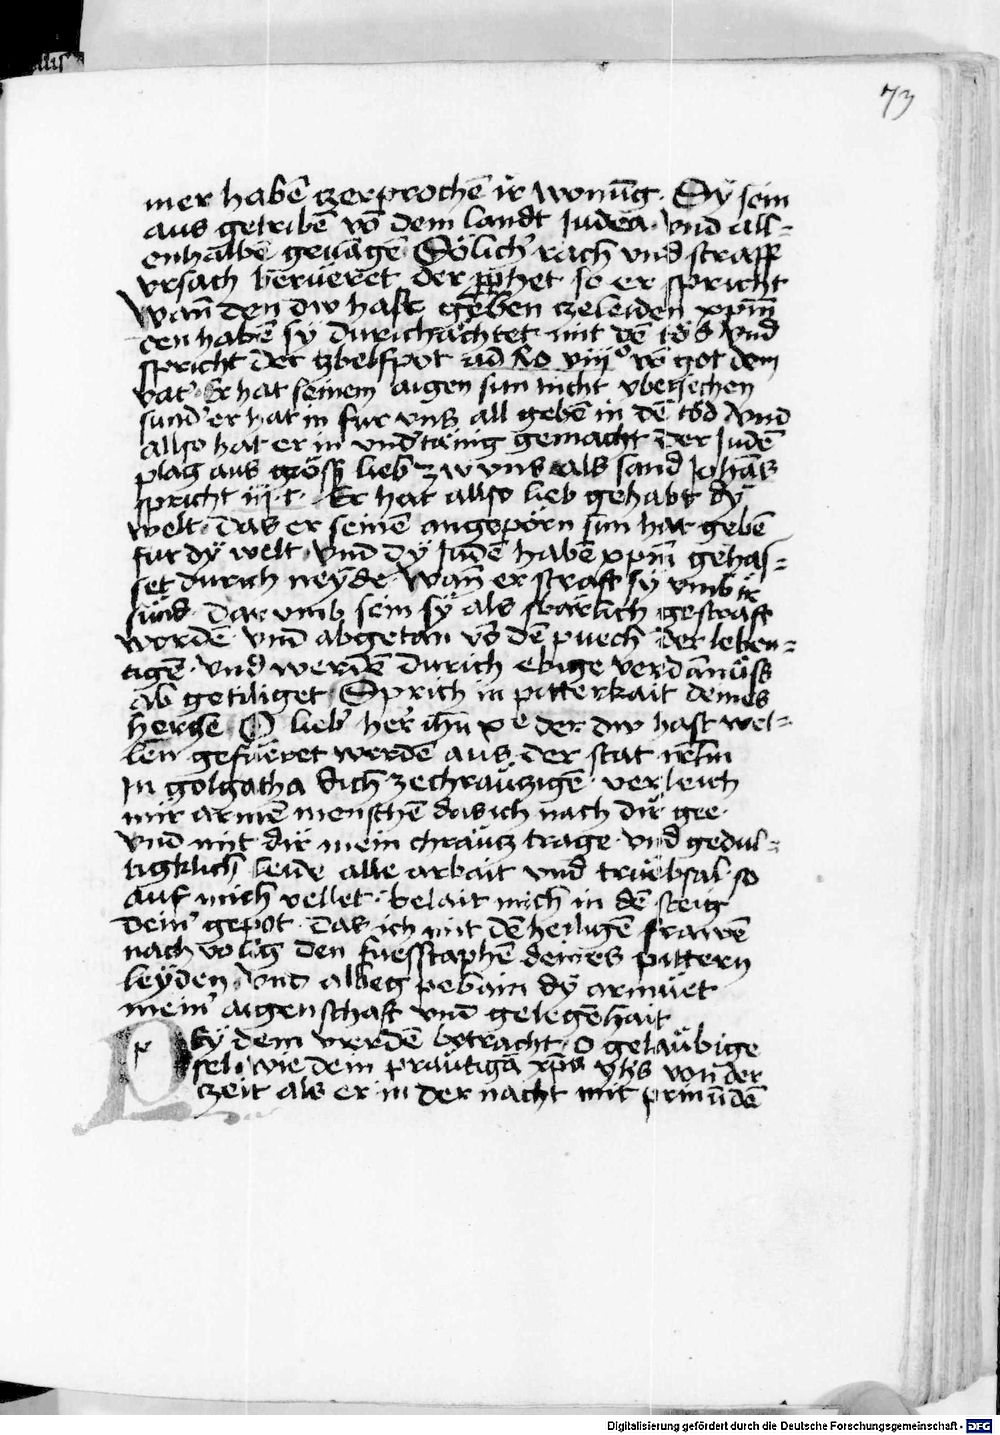 73
mer habē czerprochē ir wonūg · Sÿ sein
aus getribē vō dem landt Judea · Vnd all-
enhalbē geiagē Sölich' rach vnd straff
vrsach berueret der ꝓphet so er spricht
Wañ den dw hast geben czeleiden xp̄m̄
den habē sÿ durichächtet mit dē tod Vnd
spricht der czbelfpot ad Ro viijº vō got dem
vat' · Er hat seinem aigen sun nicht vbersechen
sund' er hat in fur vns all gebē in dē tod Vnd
allso hat er in vnd'tānig gemacht der Judē
plag aus grösß lieb zw vns als sand Johās
spricht iij · c · Er hat allso lieb gehabt dÿ
welt · Das er seinē angepörn sun hat gebē
fur dÿ welt · Vnd dÿ Judē habē xp̄m̄ gehas-
set durich neÿde · Wañ er straft sÿ vmb ir
sünd · Dar vmb sein sÿ als swärlich gestraft
wordē vnd abgetan vō dē puech der leben-
tigē · Vnd werdē durich ebige verdāmüss
ab getiliget · Sprich in pitterkait deines
herczē O lieb' her' ihū xp̄e der dw hast wel-
len gefueret werdē aus der stat irlm̄
In golgatha dich zechräuczigē · verleich
mir armē menschē das ich nach dir gee ·
vnd mit dir mein chräucz trage · Vnd gedul-
tigklich leide alle arbait vnd trüebsal · so
auf mich vellet · belait mich in dē steig
dein' gepot · Das ich mit dē heiligē frawē
nach volg den fuesstaphē deines pittern
leÿden · Vnd allbeg pebain dÿ armüet
mein' aigenschaft vnd gelegēhait
P Eÿ dem werdē betracht · O geläubige
sel · wie dein präutigā xp̄s yħs von der
czeit als er in der nacht mit prinūdē
Digitalisierung gefördert durch die Deutsche Forschungsgemeinschaft - DFG